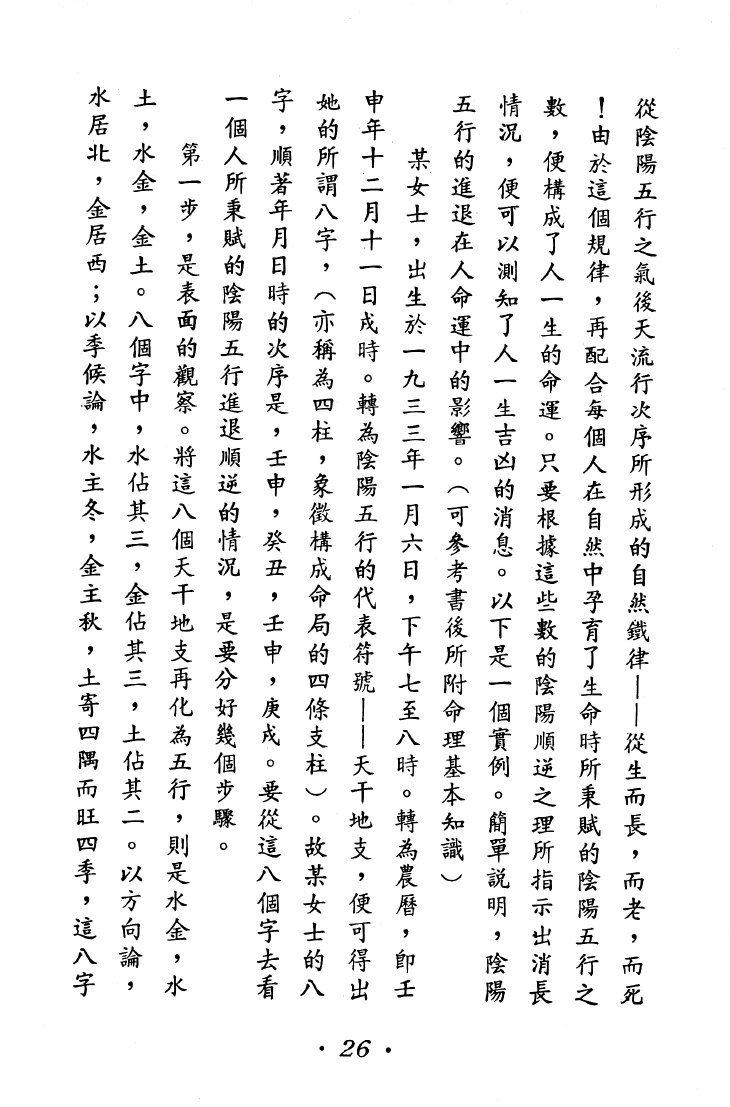 從陰陽五行之氣後天流行次序所形成的自然鐵律——從生而長，而老，而死
！由於這個規律，再配合每個人在自然中孕育了生命時所秉賦的陰陽五行之
數，便構成了人一生的命運。只要根據這些數的陰陽順逆之理所指示出消長
情況，便可以測知了人一生吉凶的消息。以下是一個實例。簡單說明，陰陽
五行的進退在人命運中的影響。（可參考書後所附命理基本知識）
某女士，出生於一九三三年一月六日，下午七至八時。轉為農曆，即壬
申年十二月十一日戌時。轉為陰陽五行的代表符號——天干地支，便可得出
她的所謂八字，（亦稱為四柱，象徵構成命局的四條支柱）。故某女士的八
字，順著年月日時的次序是，壬申，癸丑，壬申，庚戌。要從這八個字去看
一個人所秉賦的陰陽五行進退順逆的情況，是要分好幾個步驟。
第一步，是表面的觀察。將這八個天干地支再化為五行，則是水金，水
土，水金，金土。八個字中，水佔其三，金佔其三，土佔其二。以方向論，
水居北，金居西；以季候論，水主冬，金主秋，土寄四隅而旺四季，這八字
• 26 •